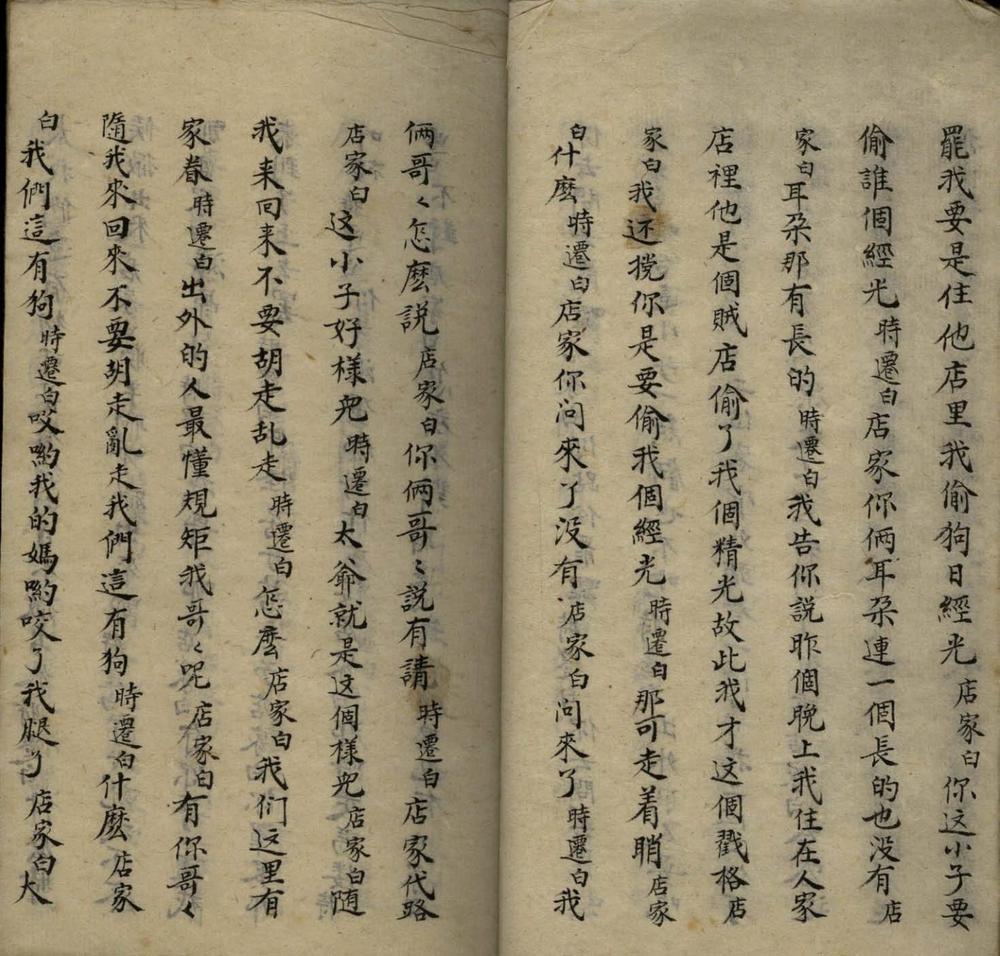 罷我要是住他店里我偷狗日經光店家白你这小子要
偷誰個經光時遷白店家你俩耳朶連一個長的也没有店
家白耳朶那有長的時遷白我告你説昨個晚上我住在人家
店裡他是個賊店偷了我個精光故此我才这個戳格店
家白我还搅你是要偷我個經光時遷白那可走着睄店家
白什麽時遷白店家你问來了没有店家白问來了時遷白我
俩哥〻怎麽説店家白你俩哥〻説有請時遷白店家代路
店家白这小子好様児時遷白太爺就是这個様児店家白随
我来回来不要胡走乱走時遷白怎麽店家白我们这里有
家眷時遷白出外的人最懂規矩我哥〻呢店家白有你哥〻
隨我來回來不要胡走亂走我們這有狗時遷白什麽店家
白我們這有狗時遷白哎喲我的媽喲咬了我腿了店家白大